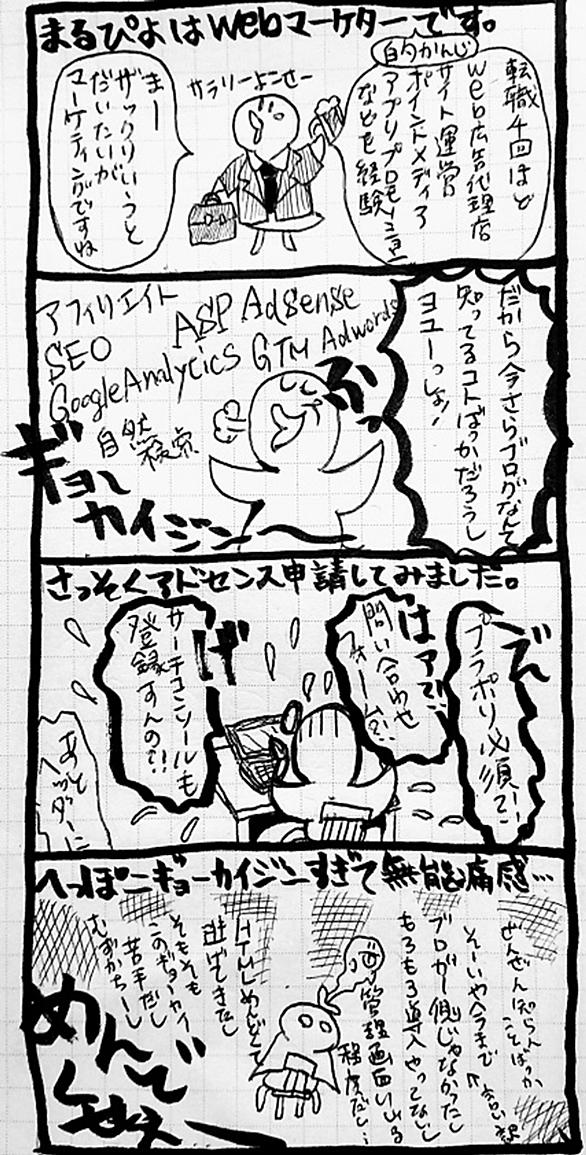 まるぴよはWebマーケターです。
自夕かんじ
転職4回ほど
web広告代理店
サイト運営
ポイントメディア
アプリプロモーション
などを経験
サラリーよこせー
まー
ザックリいうと
だいたいが
マーケティングですね
だから今さらブログなんて
知ってるコトばっかだろうし
ヨユーっしょ!
アフィリエイト
ASP Adsense
SEO
GoogleAnalytics GTM Adwords
自然
検索
ふっ
ギョー
カイジンー
さっそくアドセンス申請してみました。
でん
プラポリ必須!?
はァ!?
問い合わせ
フォーム!?
げ
サーチコンソールも
登録すんの?!
あと
ヘッダーに
へっぽこギョーカイジンすぎて無能痛感…
ぜんぜん知らん
ことばっか
そーいや今まで
ブロガー側じゃなかったし
もろもろ導入やってないし
管理画面いじる
程度だし…
HTMLめんどくて
逃げてきたし
そもそも
このギョーカイ
苦手だし
むずかちーし
めんで